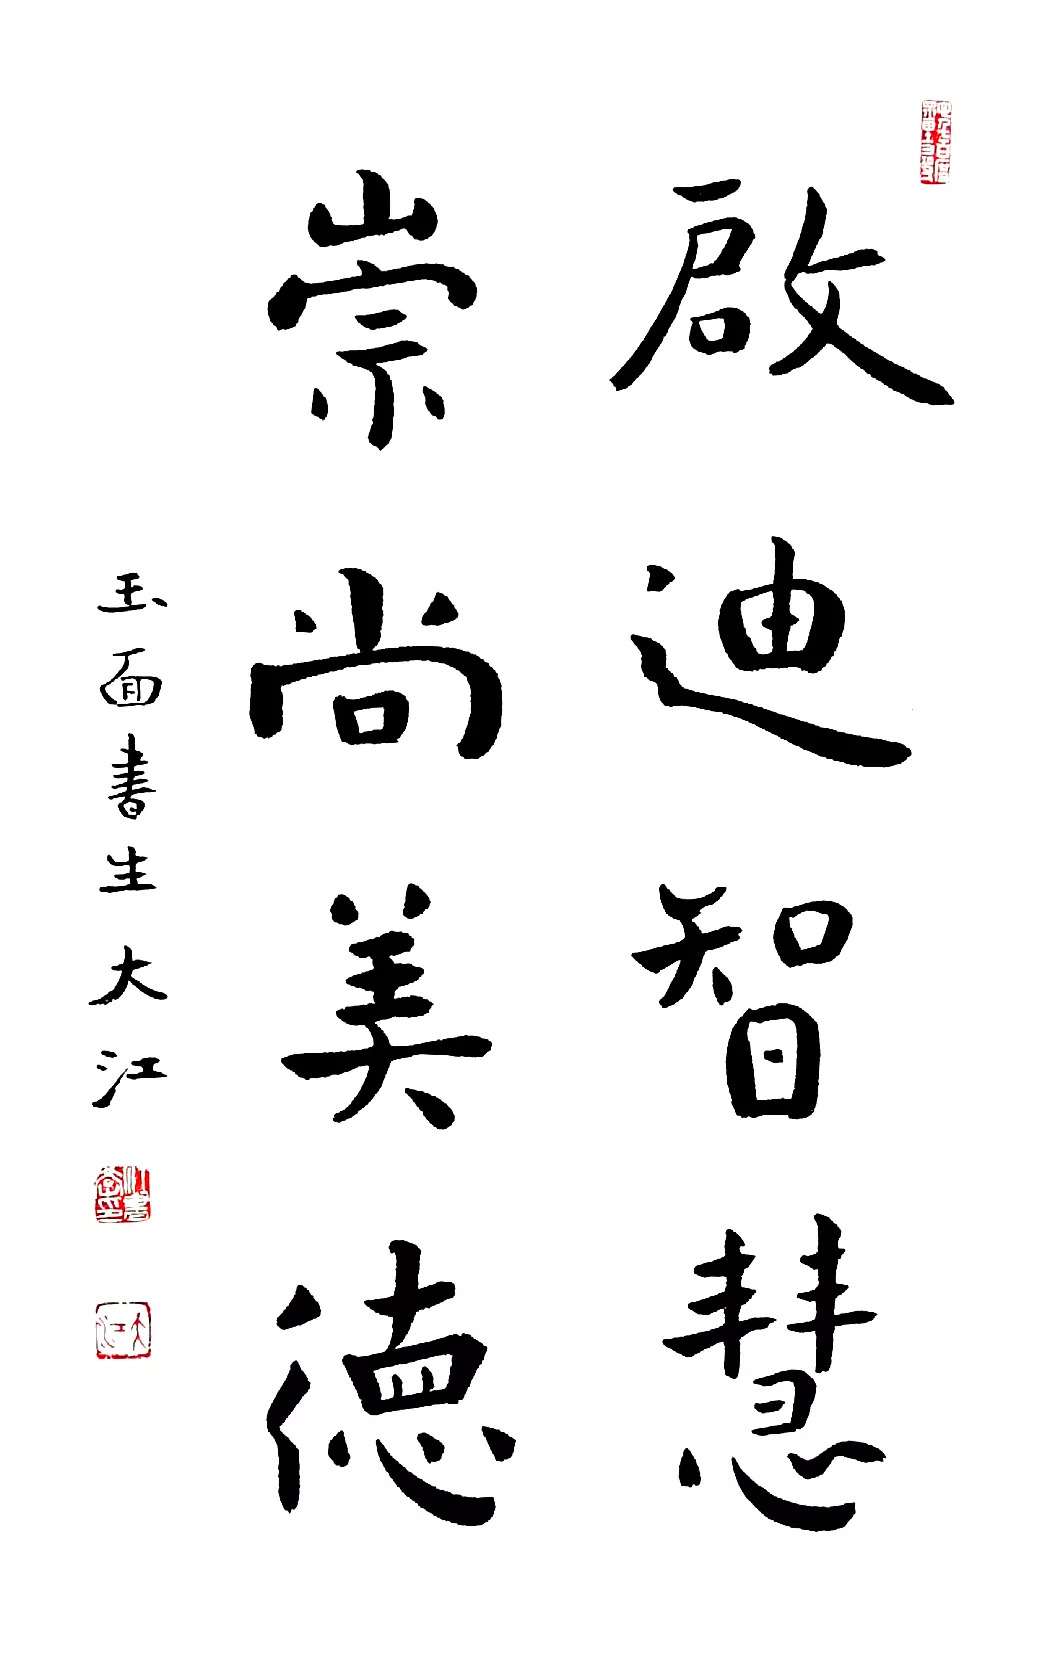 啟迪智慧
崇尚美德
玉面書生大江
大江